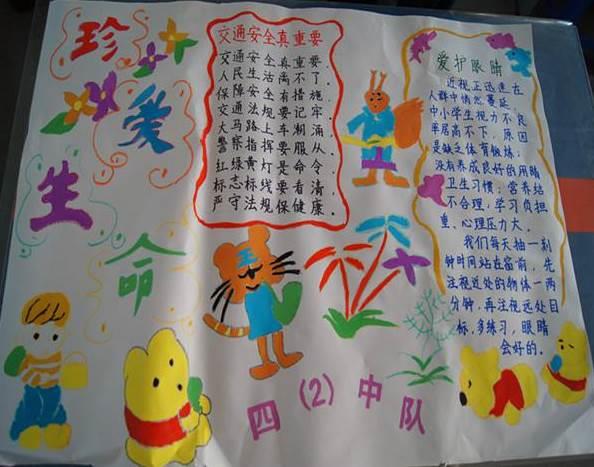 珍
爱
生
命
交通安全真重要
交通安全真重要.
人民生活离不了.
保障安全有措施
交通法规要记牢
大马路上车潮涌
警察指挥要服从
红绿黄灯是命令
标志标线要看清
严守法规保健康.
爱护眼睛
近视正迅速在
人群中情悠蔓延,
中小学生视力不良
率居高不下, 原因
是缺乏体育锻炼;
没有养成良好的用睛
卫生习惯; 营养结
不合理; 学习负担
重、心理压力大.
我们每天抽一刻
钟时间站在窗前, 先
注视近处的物体一两
分钟, 再注视远处目
标, 多练习, 眼睛
会好的.
四(2)中队